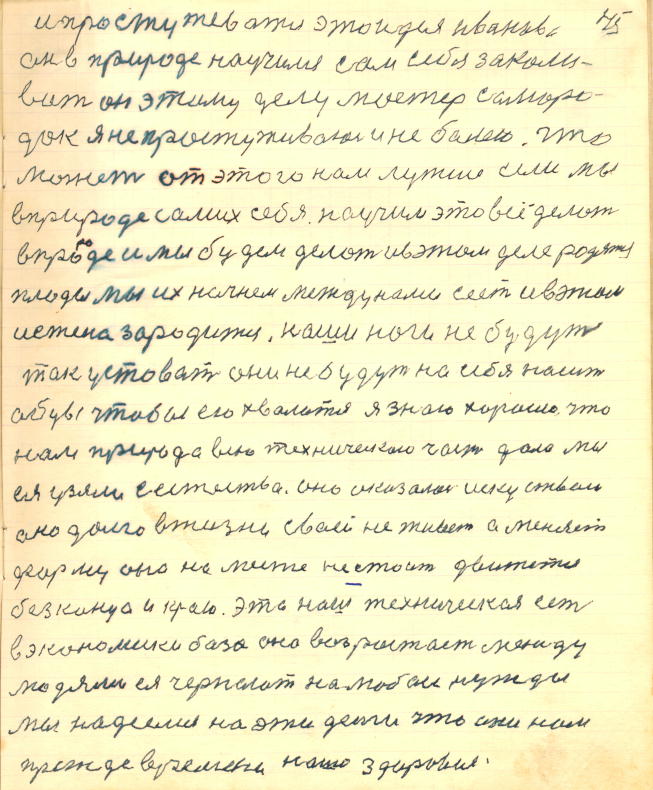 75
и простужеватя этоидея иванова
он в природе научился сам себя заколи-
ват он этому делу мастер саморо-
док я не простуживаюс и не балею. что
может от этого нам лутше если мы
в природе самих себя. научим это всё делат
в природе и мы будем делат и в этом деле родятся
плоды мы их начнем между нами сеет и в этом
истена зародится. наши ноги не будут
так уствоват они не будут на себя насит
обувы чтобы его хвалится я знаю хорошо что
нам природа всю техническою част дала мы
ея узяли с естества. оно оказалос искуством
оно долго в жизни своей не живет а меняет
форму она на месте не стоит движится
без конца и краю. эта наш техническая ест
в экономики база она возростает между
людями ея черпают на любои нужды
мы надеемся на эти дети что они нам
прежде времени наше здоровия.